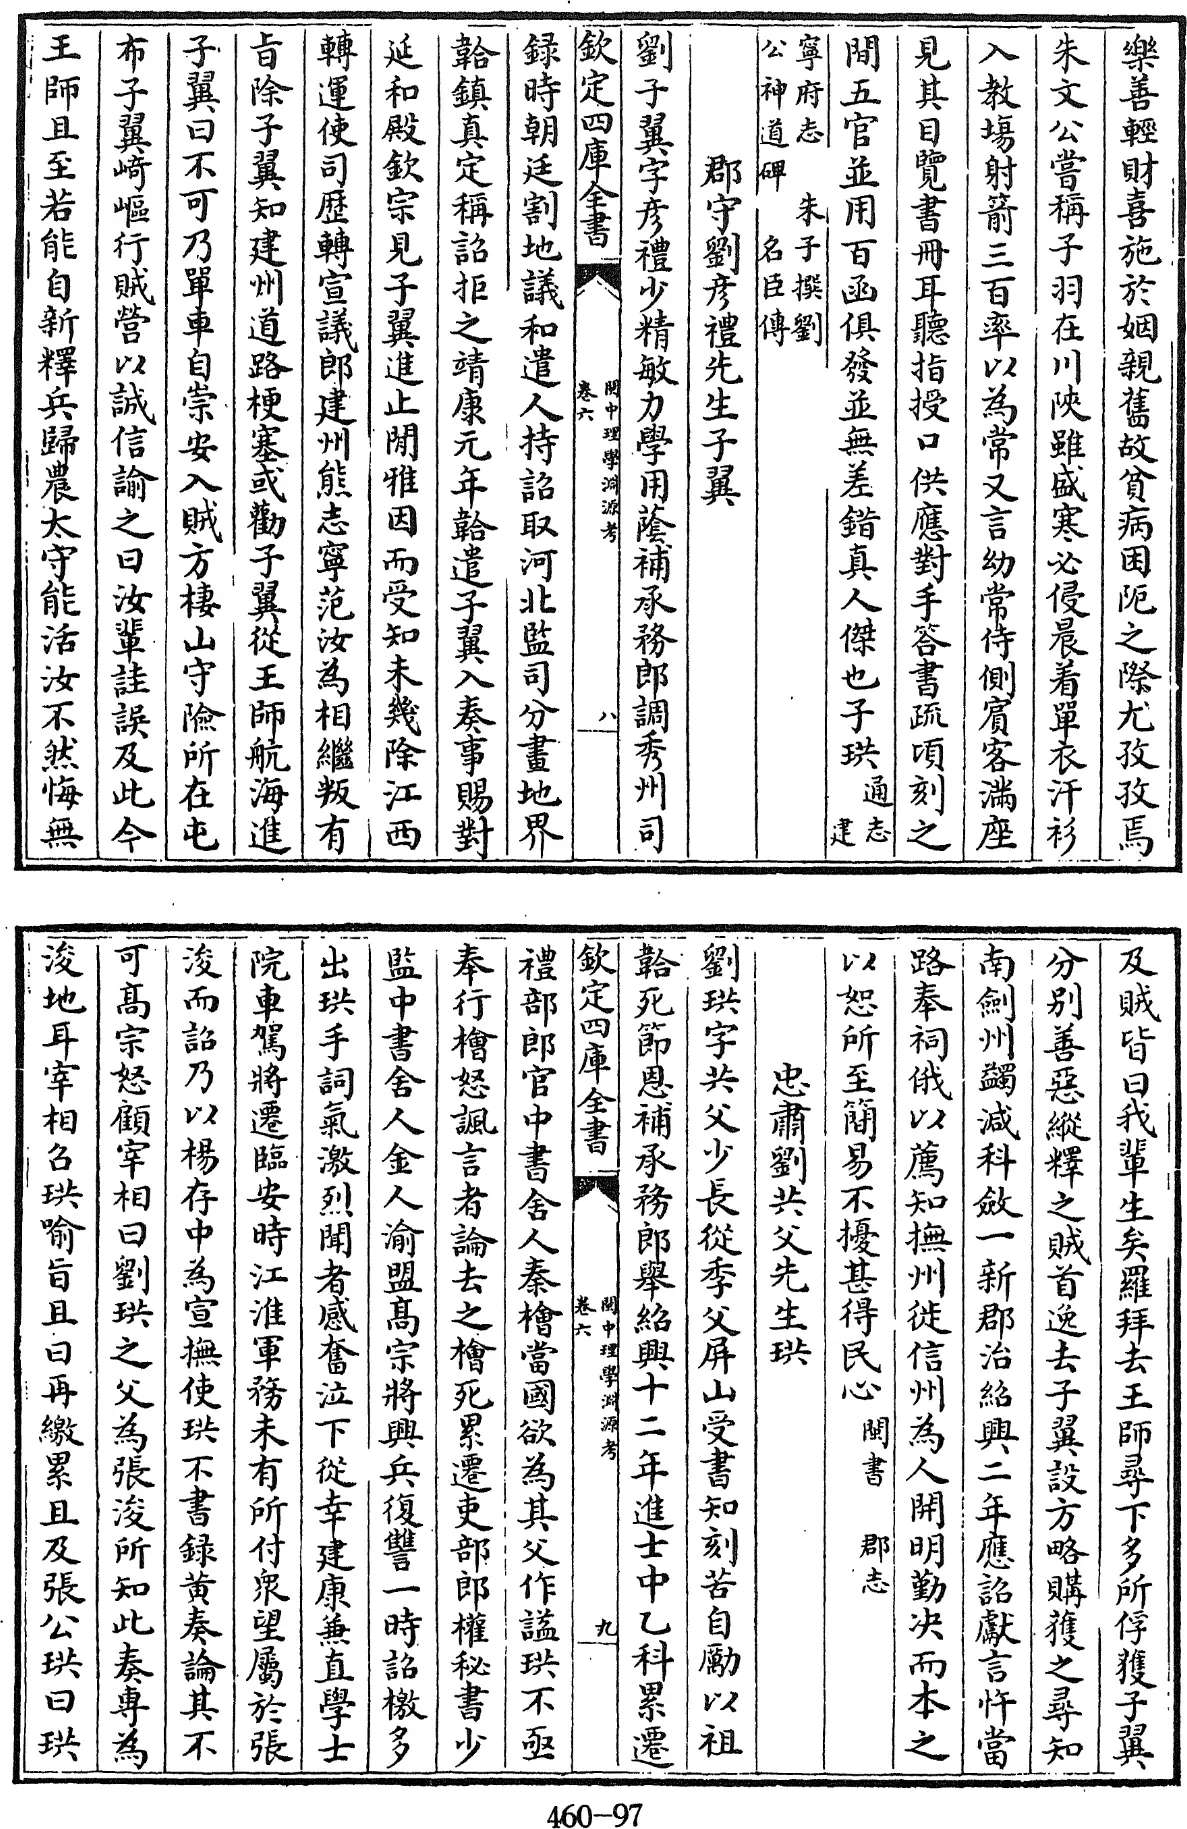 樂善輕財喜施於姻親舊故貧病困阨之際尤孜孜焉
朱文公嘗稱子羽在川陝雖盛寒必侵晨着單衣汗衫
入教塲射箭三百率以為常又言幼常侍側賓客滿座
見其目覽書冊耳聽指授口供應對手答書疏頃刻之
間五官並用百函俱發並無差錯真人傑也子珙 通志 建
寧府志 朱子撰劉
公神道碑 名臣傳
郡守劉彦禮先生子翼
劉子翼字彦禮少精敏力學用蔭補承務郎調秀州司
欽定四庫全書 閩中理學淵源考 卷六 八
録時朝廷割地議和遣人持詔取河北監司分畫地界
韐鎮真定稱詔拒之靖康元年韐遣子翼入奏事賜對
延和殿欽宗見子翼進止閒雅因而受知未幾除江西
轉運使司歴轉宣議郎建州熊志寧范汝為相繼叛有
旨除子翼知建州道路梗塞或勸子翼從王師航海進
子翼曰不可乃單車自崇安入賊方棲山守險所在屯
布子翼﨑嶇行賊營以誠信諭之曰汝輩詿誤及此今
王師且至若能自新釋兵歸農太守能活汝不然悔無
及賊皆曰我輩生矣羅拜去王師尋下多所俘獲子翼
分别善惡縱釋之賊首逸去子翼設方略購獲之尋知
南劍州蠲減科斂一新郡治紹興二年應詔獻言忤當
路奉祠俄以薦知撫州徙信州為人開明勤决而本之
以恕所至簡易不擾甚得民心 閩書 郡志
忠肅劉共父先生珙
劉珙字共父少長從季父屏山受書知刻苦自勵以祖
韐死節恩補承務郎舉紹興十二年進士中乙科累遷
欽定四庫全書 閩中理學淵源考 卷六 九
禮部郎官中書舍人秦檜當國欲為其父作諡珙不亟
奉行檜怒諷言者論去之檜死累遷吏部郎權秘書少
監中書舍人金人渝盟髙宗將興兵復讐一時詔檄多
出珙手詞氣激烈聞者感奮泣下從幸建康兼直學士
院車駕將遷臨安時江淮軍務未有所付衆望屬於張
浚而詔乃以楊存中為宣撫使珙不書録黄奏論其不
可髙宗怒顧宰相曰劉珙之父為張浚所知此奏專為
浚地耳宰相召珙喻旨且曰再繳累且及張公珙曰珙
460-97